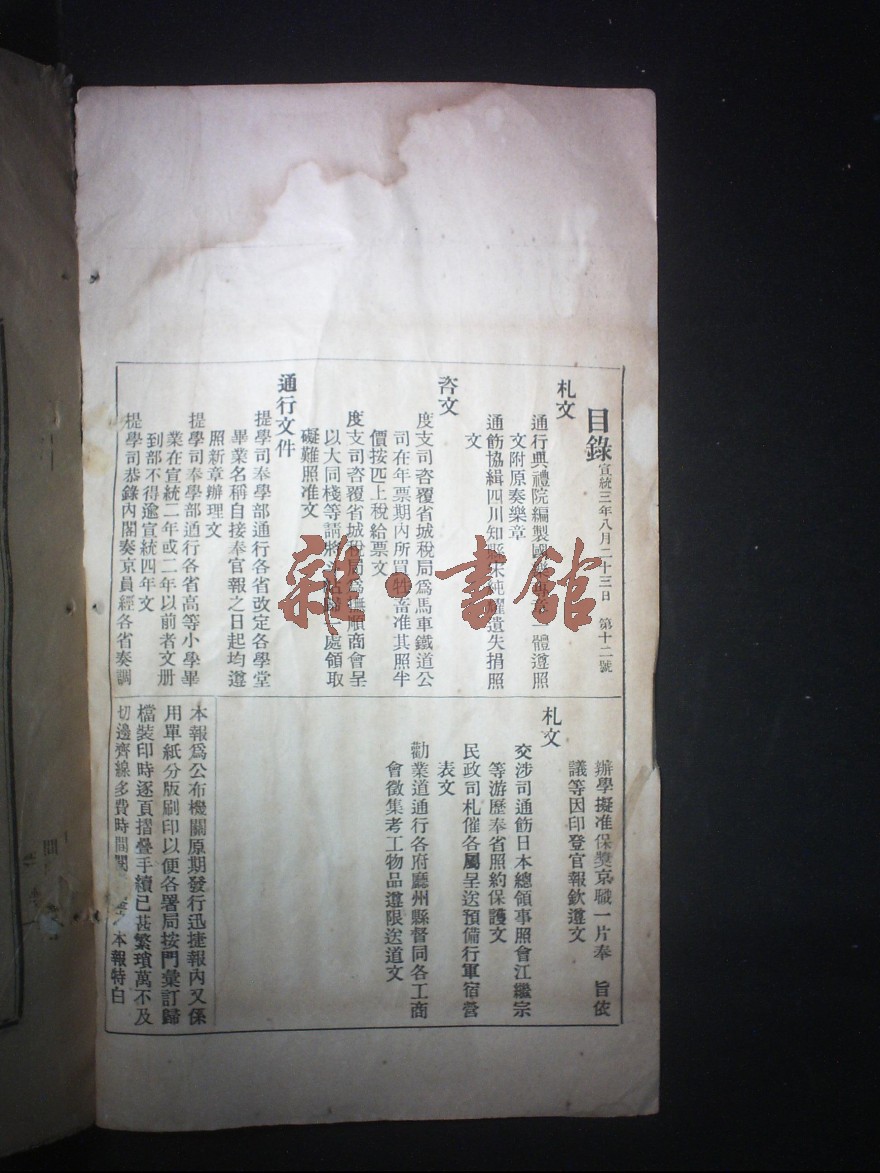 目錄 宣統三年八月二十三日 第十二號
札文
通行典禮院編製國樂一體遵照
文附原奏樂章
通飭協緝四川知縣朱純遺失捐照
文
咨文
度支司咨覆省城稅局爲馬車鐵道公
司在年票期內所買牲畜准其照半
價按匹上稅給票文
度支司咨覆省城稅局爲撫順商會呈
以大同棧等請將歸一處領取
礙難照准文
通行文件
提學司奉學部通行各省改定各學堂
畢業名稱自接奉官報之日起均遵
照新章辦理文
提學司奉學部通行各省高等小學畢
業在宣統二年或二年以前者文册
到部不得逾宣統四年文
提學司恭錄內閣奏京員經各省奏調
辦學擬准保獎京職一片奉 旨依
議等因印登官報欽遵文
札文
交涉司通飭日本總領事照會江繼宗
等游歷奉省照約保護文
民政司札催各屬呈送預備行軍宿營
表文
勸業道通行各府廳州縣督同各工商
會徵集考工物品遵限送道文
本報爲公布機關原期發行迅捷報內又係
用單紙分版刷印以便各署局按門彙訂歸
檔裝印時逐頁摺疊手續已甚繁瑣萬不及
切邊齊線多費時間閱本報特白
雜·書館